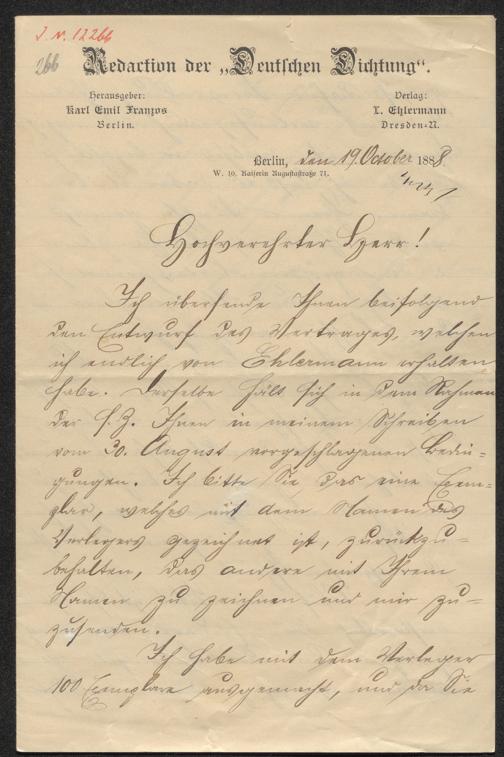 J. N. 12266
266
Redaction der „Deutschen Dichtung“.
Herausgeber:
Karl Emil Franzos
Berlin.
Verlag:
L. Ehlermann
Dresden-N.
Berlin, den 19. October 1888.
W. 10. Kaiserin Augustastraße 71.
Hochverehrter Herr!
Ich übersende Ihnen beifolgend
den Entwurf des Vertrages, welchen
ich endlich von Ehlermann erhalten
habe. Derselbe hält sich in dem Rahmen
der s. Z. Ihnen in meinem Schreiben
vom 30. August vorgeschlagenen Bedin=
gungen. Ich bitte Sie, das eine Exem=
plar, welches mit dem Namen des
Verlegers gezeichnet ist, zurückzu=
behalten, das andere mit Ihrem
Namen zu zeichnen und mir zu=
zusenden.
Ich habe mit dem Verleger
100 Exemplare ausgemacht, und da Sie